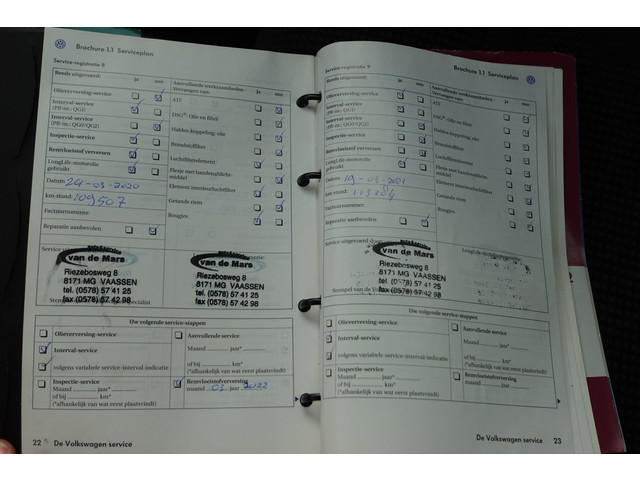 Brochure 1.1 Serviceplan
Service-registratie 8
Reeds uitgevoerd: ja nee
Olieverversing-service
Interval-service
(PR-nr.: QG1)
Interval-service
(PR-nr.: QG0/QG2)
Inspectie-service
Remvloeistof verversen
LongLife-motorolie
gebruikt
Datum: 24-03-2020
km-stand: 109507
Factuurnummer:
Reparatie aanbevolen
Aanvullende werkzaamheden - ja nee
Vervangen van:
ATF
DSG®: Olie en filter
Haldex koppeling: olie
Brandstoffilter
Luchtfilterelement
Flesje met bandendichtmiddel
Element interieurluchtfilter
Getande riem
Bougies
van de Mars
Riezebosweg 8
8171 MG VAASSEN
tel. (0578) 57 41 25
fax (0578) 57 42 98
van de Mars
Riezebosweg 8
8171 MG VAASSEN
tel. (0578) 57 41 25
fax (0578) 57 42 98
Uw volgende service-stappen
Olieverversing-service
Interval-service
volgens variabele service-interval-indicatie
Inspectie-service
Maand ............ jaar*
of bij ............ km*
(*afhankelijk van wat eerst plaatsvindt)
Aanvullende service
Maand ............ jaar*
of bij ............ km*
(*afhankelijk van wat eerst plaatsvindt)
Remvloeistofverversing
maand 03 jaar 2022
22 De Volkswagen service
Brochure 1.1 Serviceplan
Service-registratie 9
Reeds uitgevoerd: ja nee
Olieverversing-service
Interval-service
(PR-nr.: QG1)
Interval-service
(PR-nr.: QG0/QG2)
Inspectie-service
Remvloeistof verversen
LongLife-motorolie
gebruikt
Datum: 19-03-2021
km-stand:
Factuurnummer:
Reparatie aanbevolen
Aanvullende werkzaamheden - ja nee
Vervangen van:
ATF
DSG®: Olie en filter
Haldex koppeling: olie
Brandstoffilter
Luchtfilterelement
Flesje met bandendichtmiddel
Element interieurluchtfilter
Getande riem
Bougies
Service uitgevoerd door:
van de Mars
Riezebosweg 8
8171 MG VAASSEN
tel. (0578) 57 41 25
fax (0578) 57 42 98
Uw volgende service-stappen
Olieverversing-service
Interval-service
volgens variabele service-interval-indicatie
Inspectie-service
Maand ............ jaar*
of bij ............ km*
(*afhankelijk van wat eerst plaatsvindt)
Aanvullende service
Maand ............ jaar*
of bij ............ km*
(*afhankelijk van wat eerst plaatsvindt)
Remvloeistofverversing
maand ........ jaar ........
De Volkswagen service 23